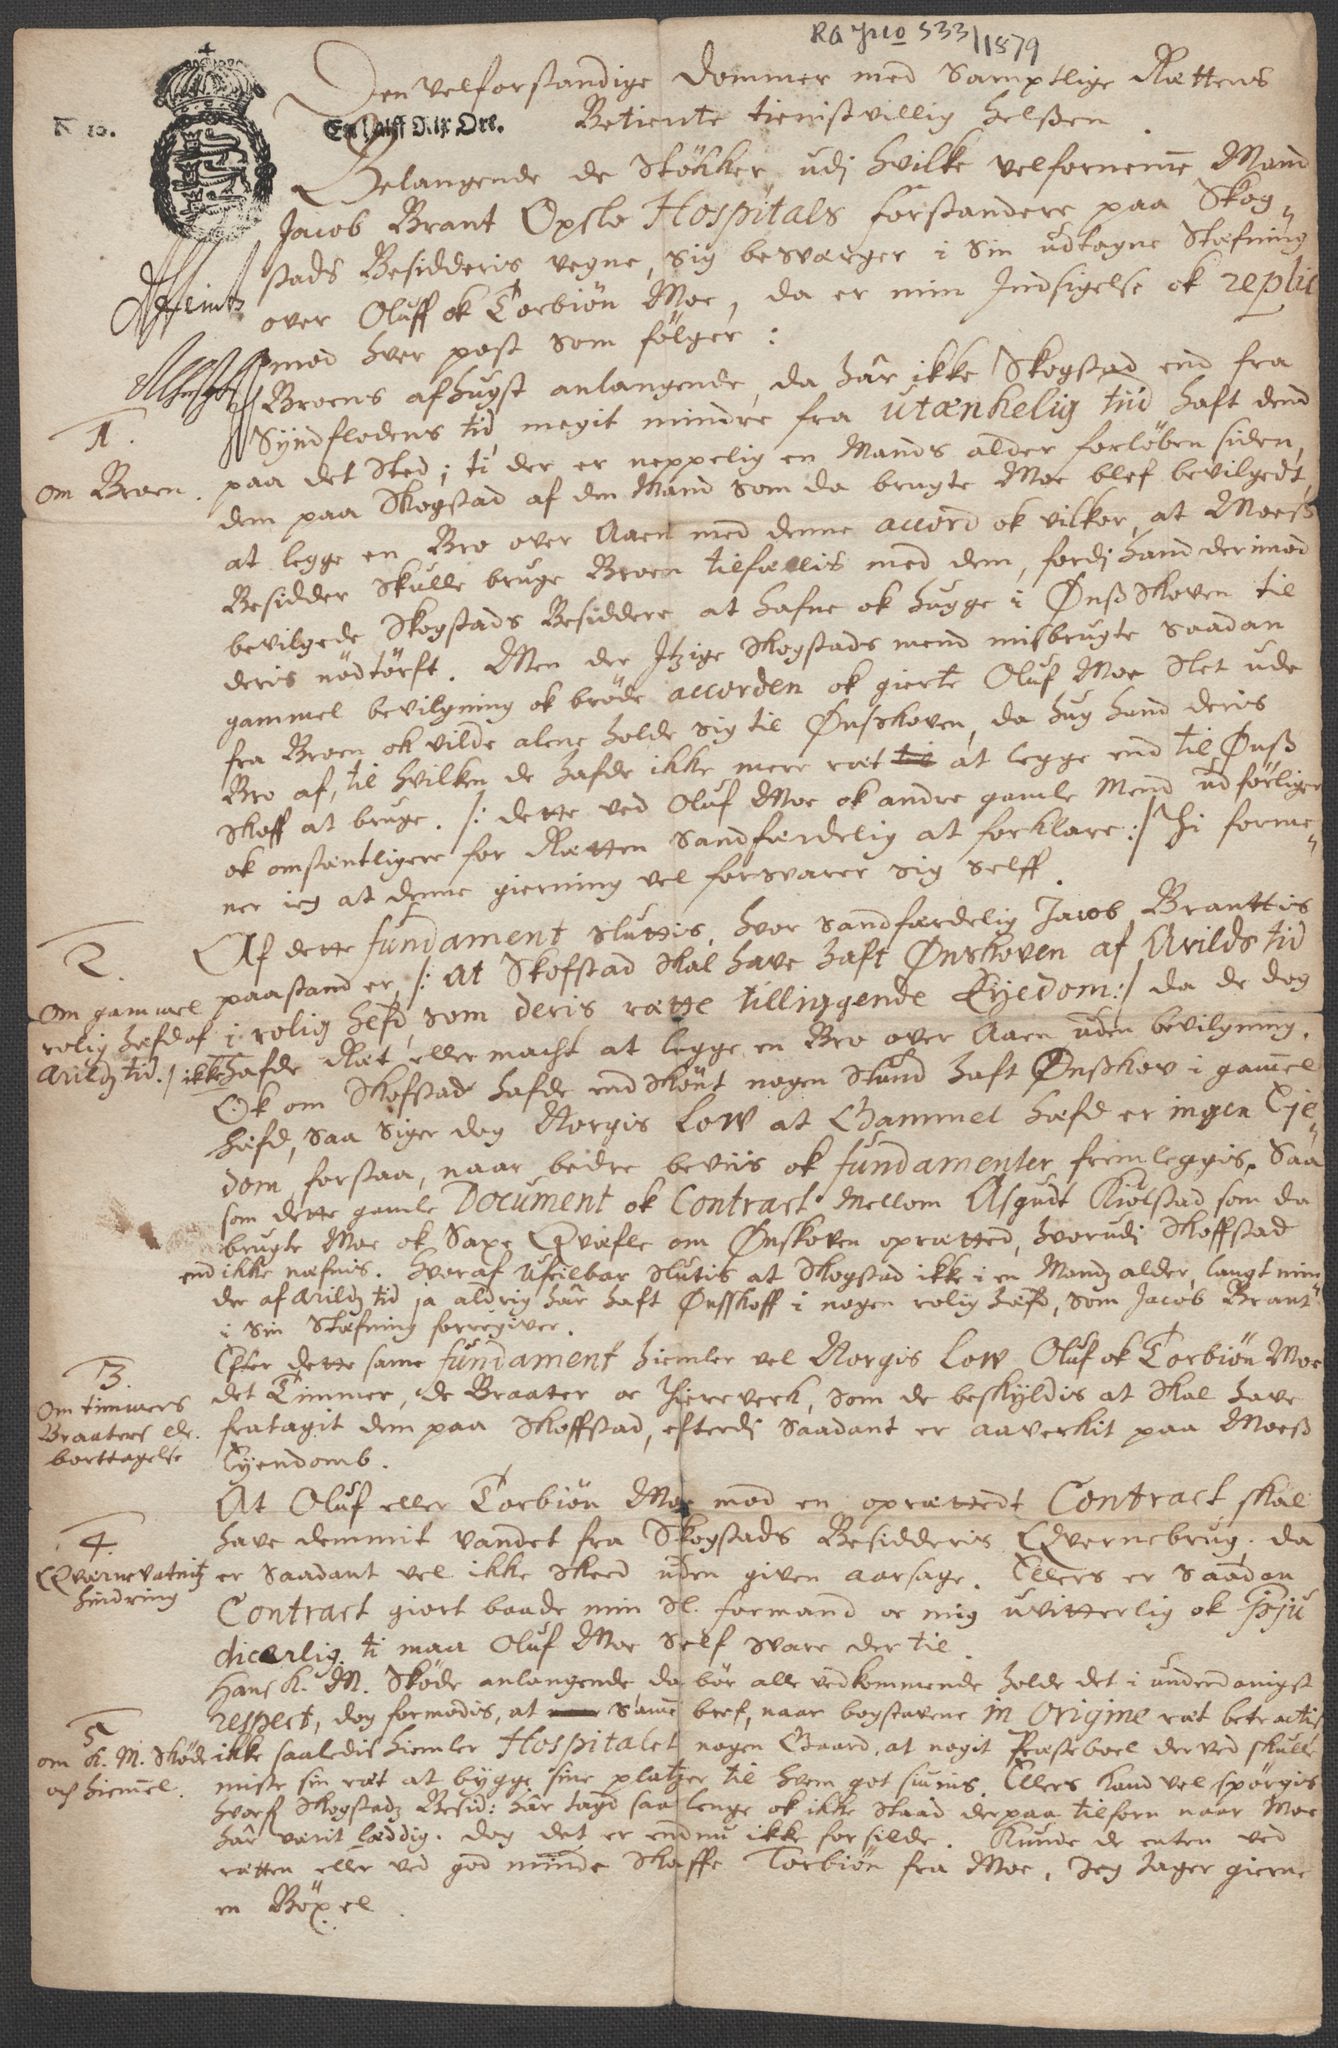 RA Jno 533/1879
Den velforstandige Dommer med Samptlige Rættens
N 10. En halff Mrk Ort. Betiente tienistvillig helssen.
Belangende de Stökker udj hvilke velforneme Mand
Jacob Brant Opslo Hospitals forstandere paa Skog„
stads Besidderis vegne, sig besværger i Sin udtagne Stæfning
over Oluff ok Torbiön Moe, da er min Indsigelse ok replic
mod hver post Som fölger:
1.
om Broen.
Broens afhugst anlangende, da hâr ikke Skogstad end fra
Syndflodens tid, megit mindre fra utænkelig tiid haft dend
paa det Sted; ti der er neppelig en Mands alder forlöben siden,
dem paa Skogstad af den Mand Som da brugte Moe blef bevilgedt,
at legge en Bro over Aaen med denne accord ok vilkor, at Moess
Besidder Skulle bruge Broen tilfællis med dem, fordj hand derimod
bevilgede Skogstads Besiddere at hafne ok hugge i Ønss Skoven til
deris nödtörft. Men der Itzige Skogstads mend misbrugte saadan
gammel bevilgning ok bröde accorden ok gierte Oluf Moe Slet ude
fra Broen ok vilde alene holde sig til Ønsskoven, da hug hand deris
Bro af, til hvilken de hafde ikke mere ræt at legge end til Ønss
Skoff at bruge. /: dette ved Oluf Moe ok andre gamle Mend udförliger
ok omstentligere for Rætten Sandfærdelig at forklare:/ Thi forme„
ner ieg at denne gierning vel forsvarer sig selff.
2.
om gammel
rolig hæfd af
Arildz tid.
Af dette fundament Sluttis, hvor Sandfærdelig Jacob Branttis
paastand er, /: At Skofstad Skal have haft Ønskoven af Arilds tid
i rolig hefd, som deris rætte tilliggende Eyedom:/ da de dog
ikke hafde Ræt eller macht at legge en Bro over Aaen uden bevilgning.
Ok om Skofstad hafde end Skönt nogen Stund haft Ønsskov i gamel
hæfd, saa Siger dog Norgis Low at Gammel hæfd er ingen Eje„
dom, forstaa, naar bedre beviis ok fundamenter fremleggis. Saa
som dette gamle Document ok Contract Mellom Asgudt Kiölstad som da
brugte Moe ok Saxe Qvæfle om Ønskoven oprætted, hvorudj Skoffstad
end ikke næfnis. Hvoraf Ufeilbar Slutis at Skogstad ikke i en Mandz alder, langt min
dre af Arildz tid ja aldrig hâr haft Ønsskoff i nogen rolig hæfd, som Jacob Brant
i Sin Stæfning forregiver.
3.
Om timmers
Braaters etc.
borttagelse
Efter dette same fundament hiemler vel Norgis Low Oluf ok Torbiön Moe
det Timmer, de Braater oc Thiereverk, Som de beskyldis at Skal have
fratagit dem paa Skoffstad, efterdj Saadant er aaverkit paa Moess
Eyendomb.
4.
Qværnevatnitz
hindring
At Oluf eller Torbiön Moe mod en oprættedt Contract skal
have demmit vandet fra Skogstads Besidderis Qvernebrug. da
er Saadant vel ikke Skeed uden given aarsage. Ellers er Saadan
Contract giort baade min Sl. formand oc mig uvitterlig ok præju
dicerlig. ti maa Oluf Moe Self Svare der til.
5
om K. M. Sköde
och hiemel.
Hans K. M. Sköde anlangende da bör alle vedkommende holde det i underdanigst
respect, dog formodis, at Same bref, naar bogstavene in Origine ræt betractis
ikke saaledis hiemler Hospitalet nogen Gaard, at nogit Præsteboel derved skulle
miste sin ræt at bygge sine platzer til hvem got siunis. Ellers kand vel spörgis
hvorf Skogstadz Besid: hâr tagd saa lenge ok ikke Staad derpaa tilforn naar Moe
hâr værit læddig. dog det er endnu ikke forsilde. Kunde de enten ved
rætten eller ved god minde Skaffe Torbiön fra Moe, Jeg tager gierne
en Böxel.